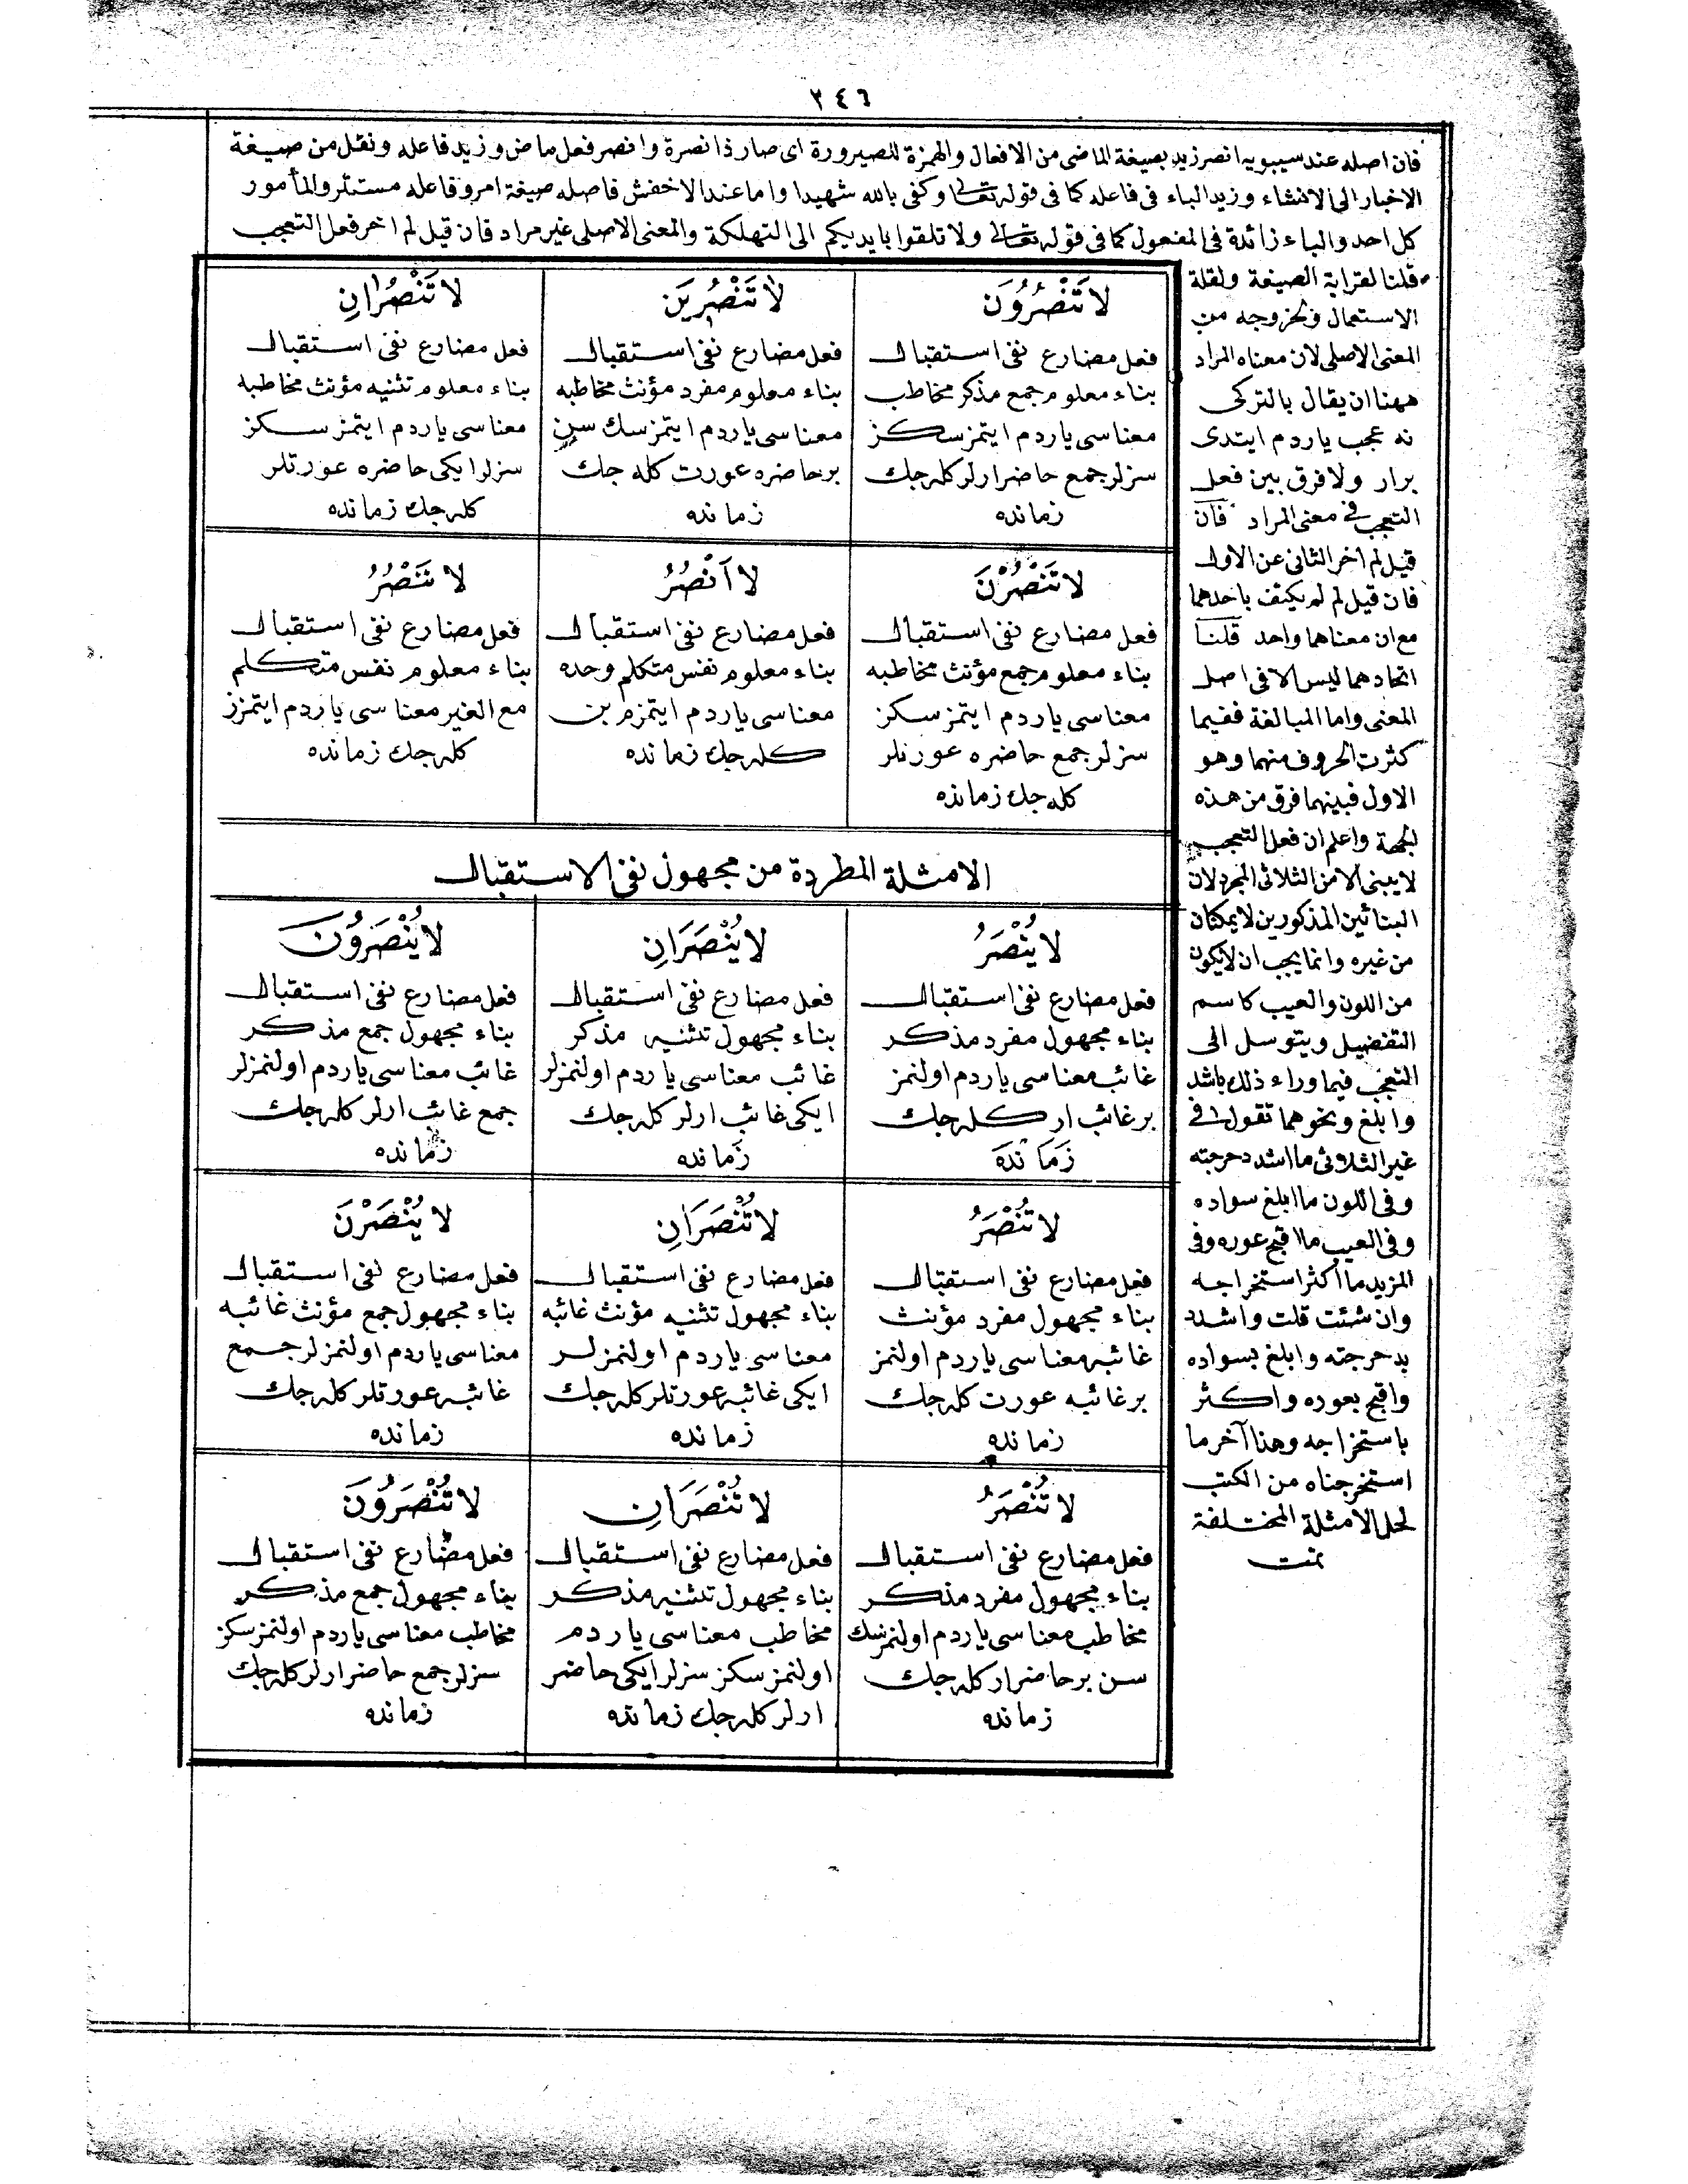 ٣٤٦
فان اصله عند سيبويه انصر زيد بصيغة الماضى من الافعال والهمزة للصيرورة اى صار ذا نصرة وانصر فعل ماض وزيد فاعله ونقل من صيغة
الاخبار الى الانشاء وزيد الباء فى فاعله كما فى قوله تعالى وكفى بالله شهيدا واما عند الاخفش فاصله صيغة امر وفاعله مستتر والمأمور
كل احد والباء زائدة فى المفعول كما فى قوله تعالى ولا تلقوا بايديكم الى التهلكة والمعنى الاصلى غير مراد فان قيل لم اخر فعل التعجب
قلنا لغرابة الصيغة ولقلة
الاستعمال ولخروجه من
المعنى الاصلى لان معناه المراد
ههنا ان يقال بالتركى
نه عجب ياردم ايتدى
برار ولا فرق بين فعل
التعجب فى معنى المراد فان
قيل لم اخر الثانى عن الاول
فان قيل لم لم يكتف باحدهما
مع ان معناهما واحد قلنا
اتحادهما ليس الا فى اصل
المعنى واما المبالغة ففيما
كثرت الحروف منهما وهو
الاول فبينهما فرق من هذه
الجهة واعلم ان فعل التعجب
لا يبنى الا من الثلاثى المجرد لان
البنائين المذكورين لا يمكنان
من غيره وانما يجب ان لا يكون
من اللون والعيب كاسم
التفضيل ويتوسل الى
التعجب فيما وراء ذلك باشد
وابلغ ونحوهما تقول فى
غير الثلاثى ما اشد دحرجته
وفى اللون ما ابلغ سواده
وفى العيب ما اقبح عوره وفى
المزيد ما اكثر استخراجه
وان شئت قلت واشدد
بدحرجته وابلغ بسواده
واقبح بعوره واكثر
باستخراجه وهذا آخر ما
استخرجناه من الكتب
لحل الامثلة المختلفة
تمت
لَا تَنْصُرُونَ
فعل مضارع نفى استقبال
بناء معلوم جمع مذكر مخاطب
معناسى ياردم ايتمزسكز
سزلر جمع حاضر ارلر كله جك
زمانده
لَا تَنْصُرِينَ
فعل مضارع نفى استقبال
بناء معلوم مفرد مؤنث مخاطبه
معناسى ياردم ايتمزسك سن
بر حاضره عورت كله جك
زمانده
لَا تَنْصُرَانِ
فعل مضارع نفى استقبال
بناء معلوم تثنيه مؤنث مخاطبه
معناسى ياردم ايتمزسكز
سزلر ايكى حاضره عورتلر
كله جك زمانده
لَا تَنْصُرْنَ
فعل مضارع نفى استقبال
بناء معلوم جمع مؤنث مخاطبه
معناسى ياردم ايتمزسكز
سزلر جمع حاضره عورتلر
كله جك زمانده
لَا اَنْصُرُ
فعل مضارع نفى استقبال
بناء معلوم نفس متكلم وحده
معناسى ياردم ايتمزم بن
كله جك زمانده
لَا نَنْصُرُ
فعل مضارع نفى استقبال
بناء معلوم نفس متكلم
مع الغير معناسى ياردم ايتمزز
كله جك زمانده
الامثلة المطردة من مجهول نفى الاستقبال
لَا يُنْصَرُ
فعل مضارع نفى استقبال
بناء مجهول مفرد مذكر
غائب معناسى ياردم اولنمز
بر غائب ار كله جك
زمانده
لَا يُنْصَرَانِ
فعل مضارع نفى استقبال
بناء مجهول تثنيه مذكر
غائب معناسى ياردم اولنمزلر
ايكى غائب ارلر كله جك
زمانده
لَا يُنْصَرُونَ
فعل مضارع نفى استقبال
بناء مجهول جمع مذكر
غائب معناسى ياردم اولنمزلر
جمع غائب ارلر كله جك
زمانده
لَا تُنْصَرُ
فعل مضارع نفى استقبال
بناء مجهول مفرد مؤنث
غائبه معناسى ياردم اولنمز
بر غائبه عورت كله جك
زمانده
لَا تُنْصَرَانِ
فعل مضارع نفى استقبال
بناء مجهول تثنيه مؤنث غائبه
معناسى ياردم اولنمزلر
ايكى غائبه عورتلر كله جك
زمانده
لَا يُنْصَرْنَ
فعل مضارع نفى استقبال
بناء مجهول جمع مؤنث غائبه
معناسى ياردم اولنمزلر جمع
غائبه عورتلر كله جك
زمانده
لَا تُنْصَرُ
فعل مضارع نفى استقبال
بناء مجهول مفرد مذكر
مخاطب معناسى ياردم اولنمزسك
سن بر حاضر ار كله جك
زمانده
لَا تُنْصَرَانِ
فعل مضارع نفى استقبال
بناء مجهول تثنيه مذكر
مخاطب معناسى ياردم
اولنمزسكز سزلر ايكى حاضر
ارلر كله جك زمانده
لَا تُنْصَرُونَ
فعل مضارع نفى استقبال
بناء مجهول جمع مذكر
مخاطب معناسى ياردم اولنمزسكز
سزلر جمع حاضر ارلر كله جك
زمانده